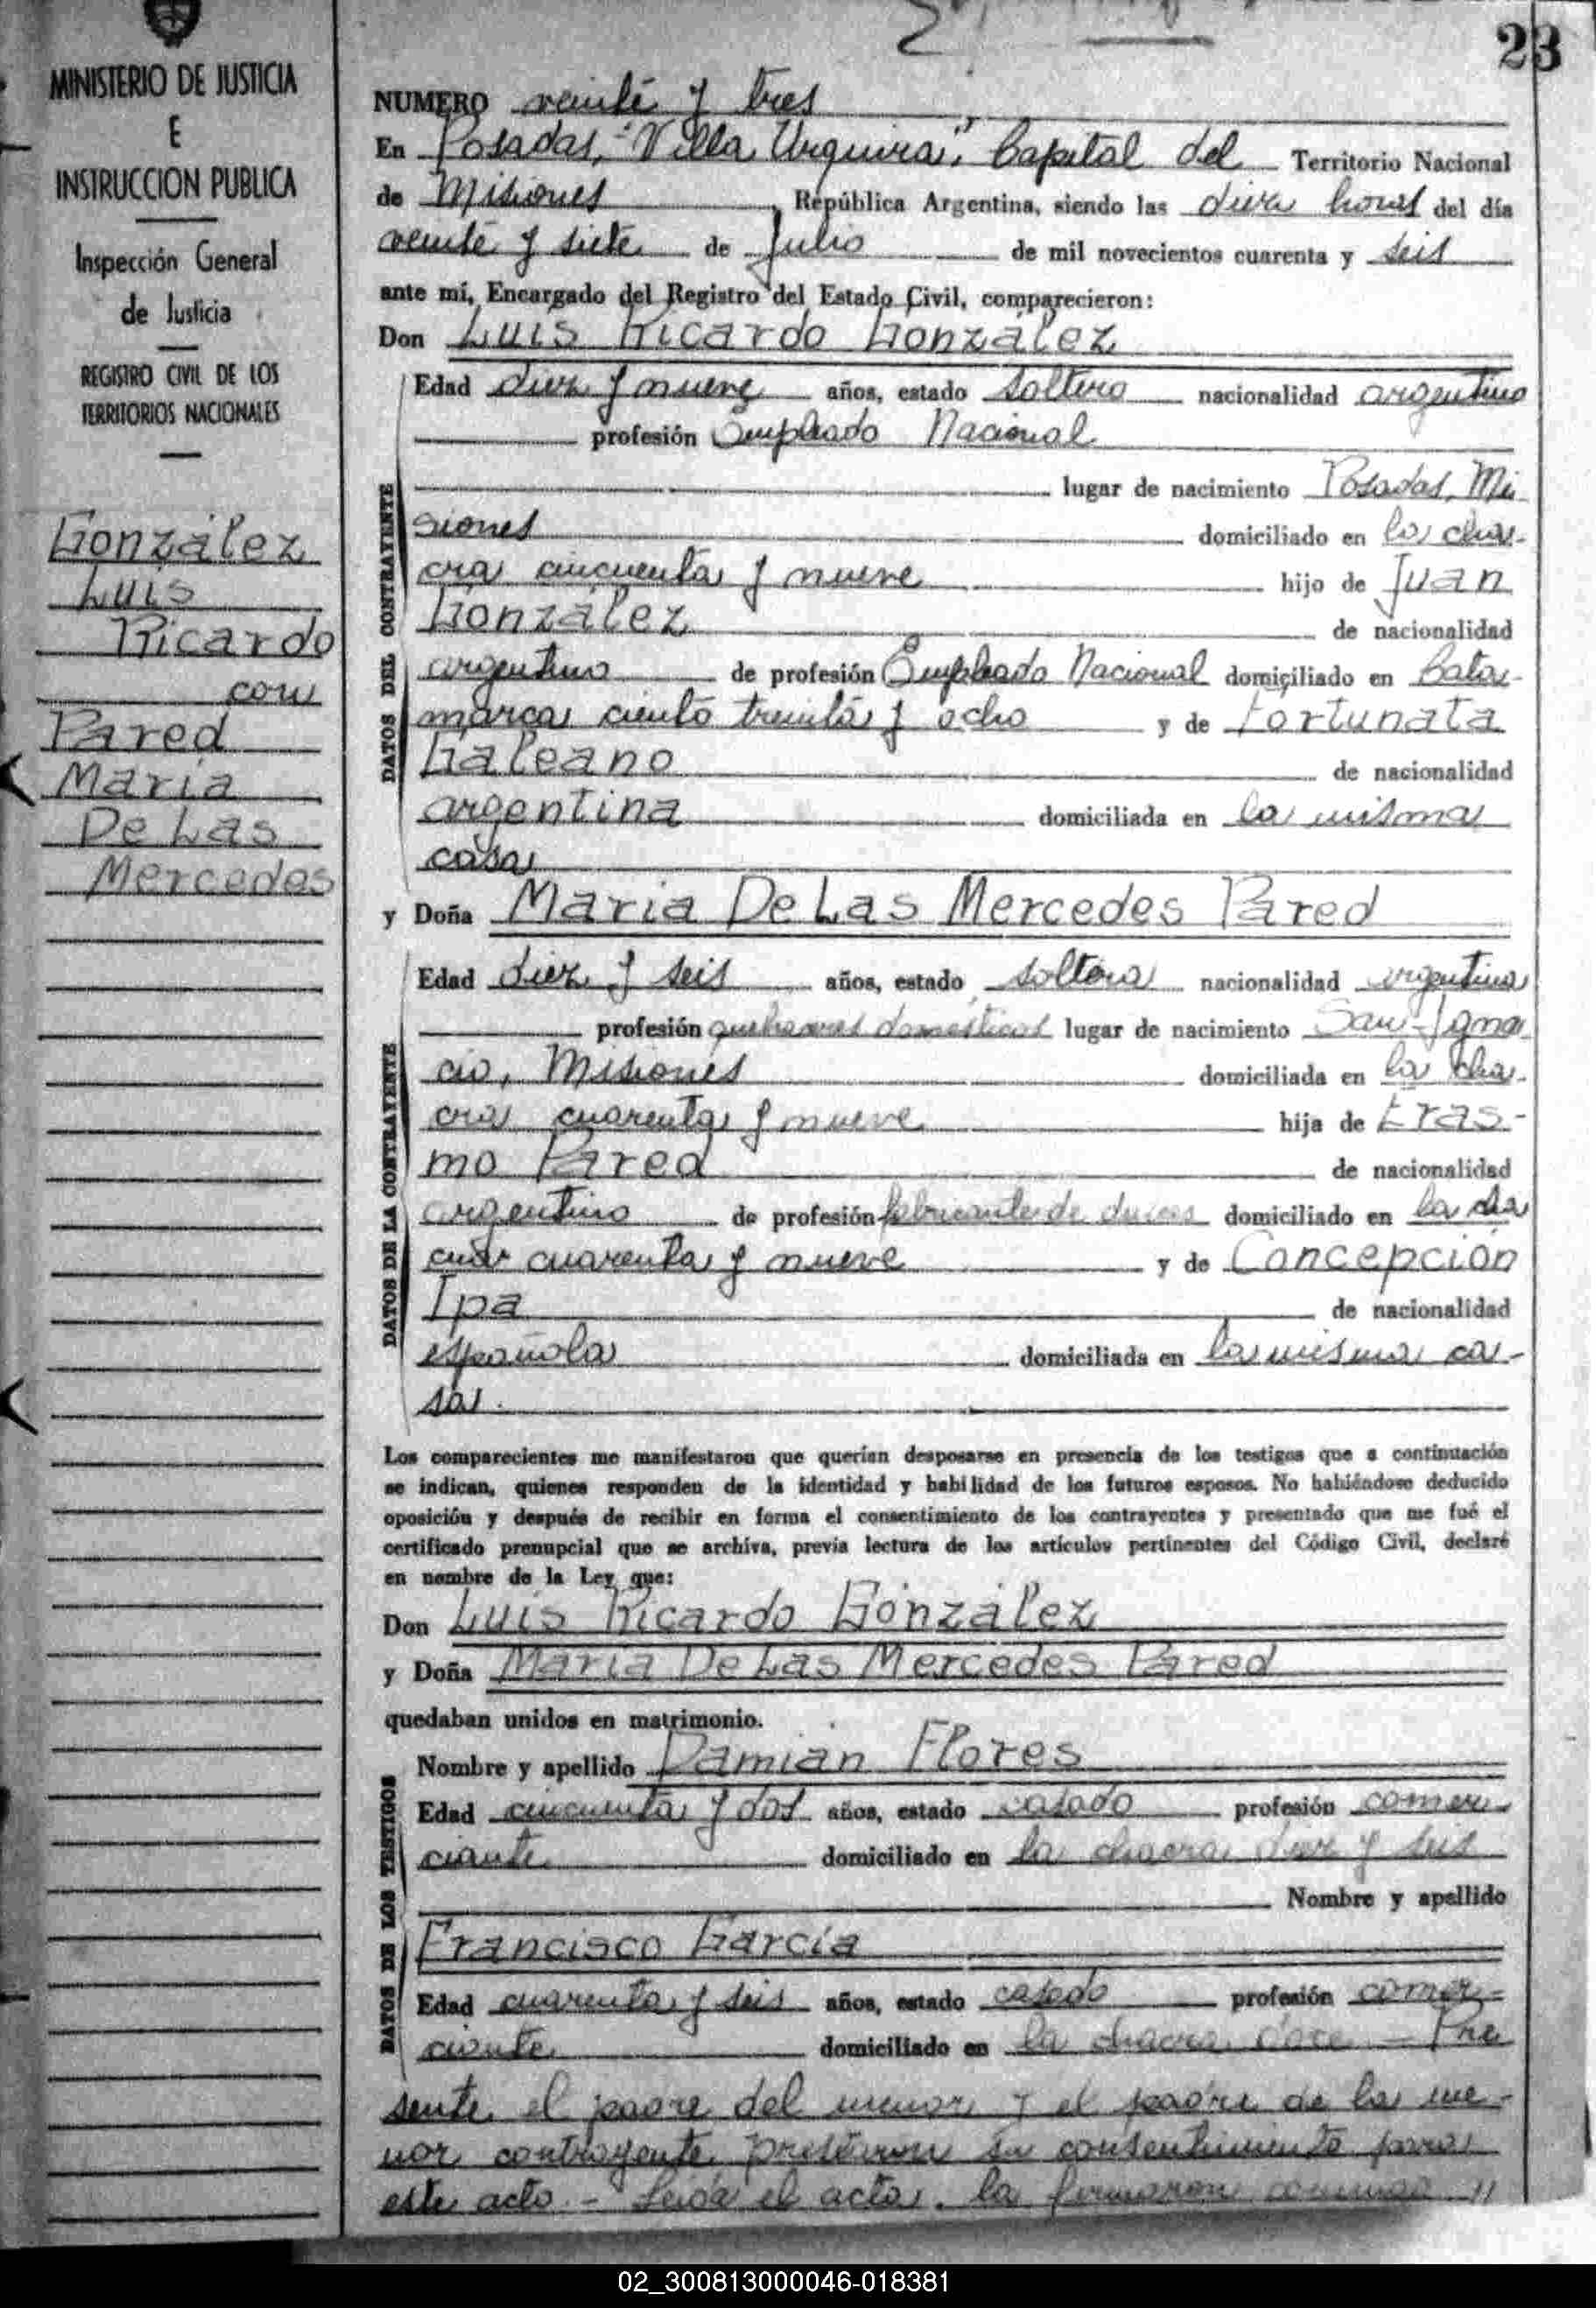 23
MINISTERIO DE JUSTICIA
E
INSTRUCCION PUBLICA
Inspección General
de Justicia
REGISTRO CIVIL DE LOS
TERRITORIOS NACIONALES
González
Luis
Ricardo
con
Pared
Maria
De Las
Mercedes
NUMERO veinte y tres
En Posadas, "Villa Urquiza", Capital del Territorio Nacional
de Misiones, República Argentina, siendo las diez horas del día
veinte y siete de Julio de mil novecientos cuarenta y seis
ante mí, Encargado del Registro del Estado Civil, comparecieron:
Don Luis Ricardo González
DATOS DEL CONTRAYENTE
Edad diez y nueve años, estado soltero nacionalidad argentino
profesión Empleado Nacional
lugar de nacimiento Posadas, Mi-
siones domiciliado en la cha-
cra cincuenta y nueve hijo de Juan
González de nacionalidad
argentino de profesión Empleado Nacional domiciliado en Cata-
marca ciento treinta y ocho y de Fortunata
Galeano de nacionalidad
argentina domiciliada en la misma
casa
y Doña Maria De Las Mercedes Pared
DATOS DE LA CONTRAYENTE
Edad diez y seis años, estado soltera nacionalidad argentina
profesión quehaceres domesticos lugar de nacimiento San Igna
cio, Misiones domiciliada en la cha-
cra cuarenta y nueve hija de Eras-
mo Pared de nacionalidad
argentino de profesión fabricante de dulces domiciliado en la cha
cra cuarenta y nueve y de Concepción
Ipa de nacionalidad
española domiciliada en la misma ca-
sa.
Los comparecientes me manifestaron que querían desposarse en presencia de los testigos que a continuación
se indican, quienes responden de la identidad y habilidad de los futuros esposos. No habiéndose deducido
oposición y después de recibir en forma el consentimiento de los contrayentes y presentado que me fué el
certificado prenupcial que se archiva, previa lectura de los artículos pertinentes del Código Civil, declaré
en nombre de la Ley que:
Don Luis Ricardo González
y Doña Maria De Las Mercedes Pared
quedaban unidos en matrimonio.
DATOS DE LOS TESTIGOS
Nombre y apellido Damián Flores
Edad cincuenta y dos años, estado casado profesión comer-
ciante domiciliado en la chacra diez y seis
Nombre y apellido
Francisco García
Edad cuarenta y seis años, estado casado profesión comer-
ciante domiciliado en la chacra doce - Pre
sente el padre del menor y el padre de la me-
nor contrayente prestaron su consentimiento para
este acto. - Leída el acta, la firmaron conmigo //
02_300813000046-018381